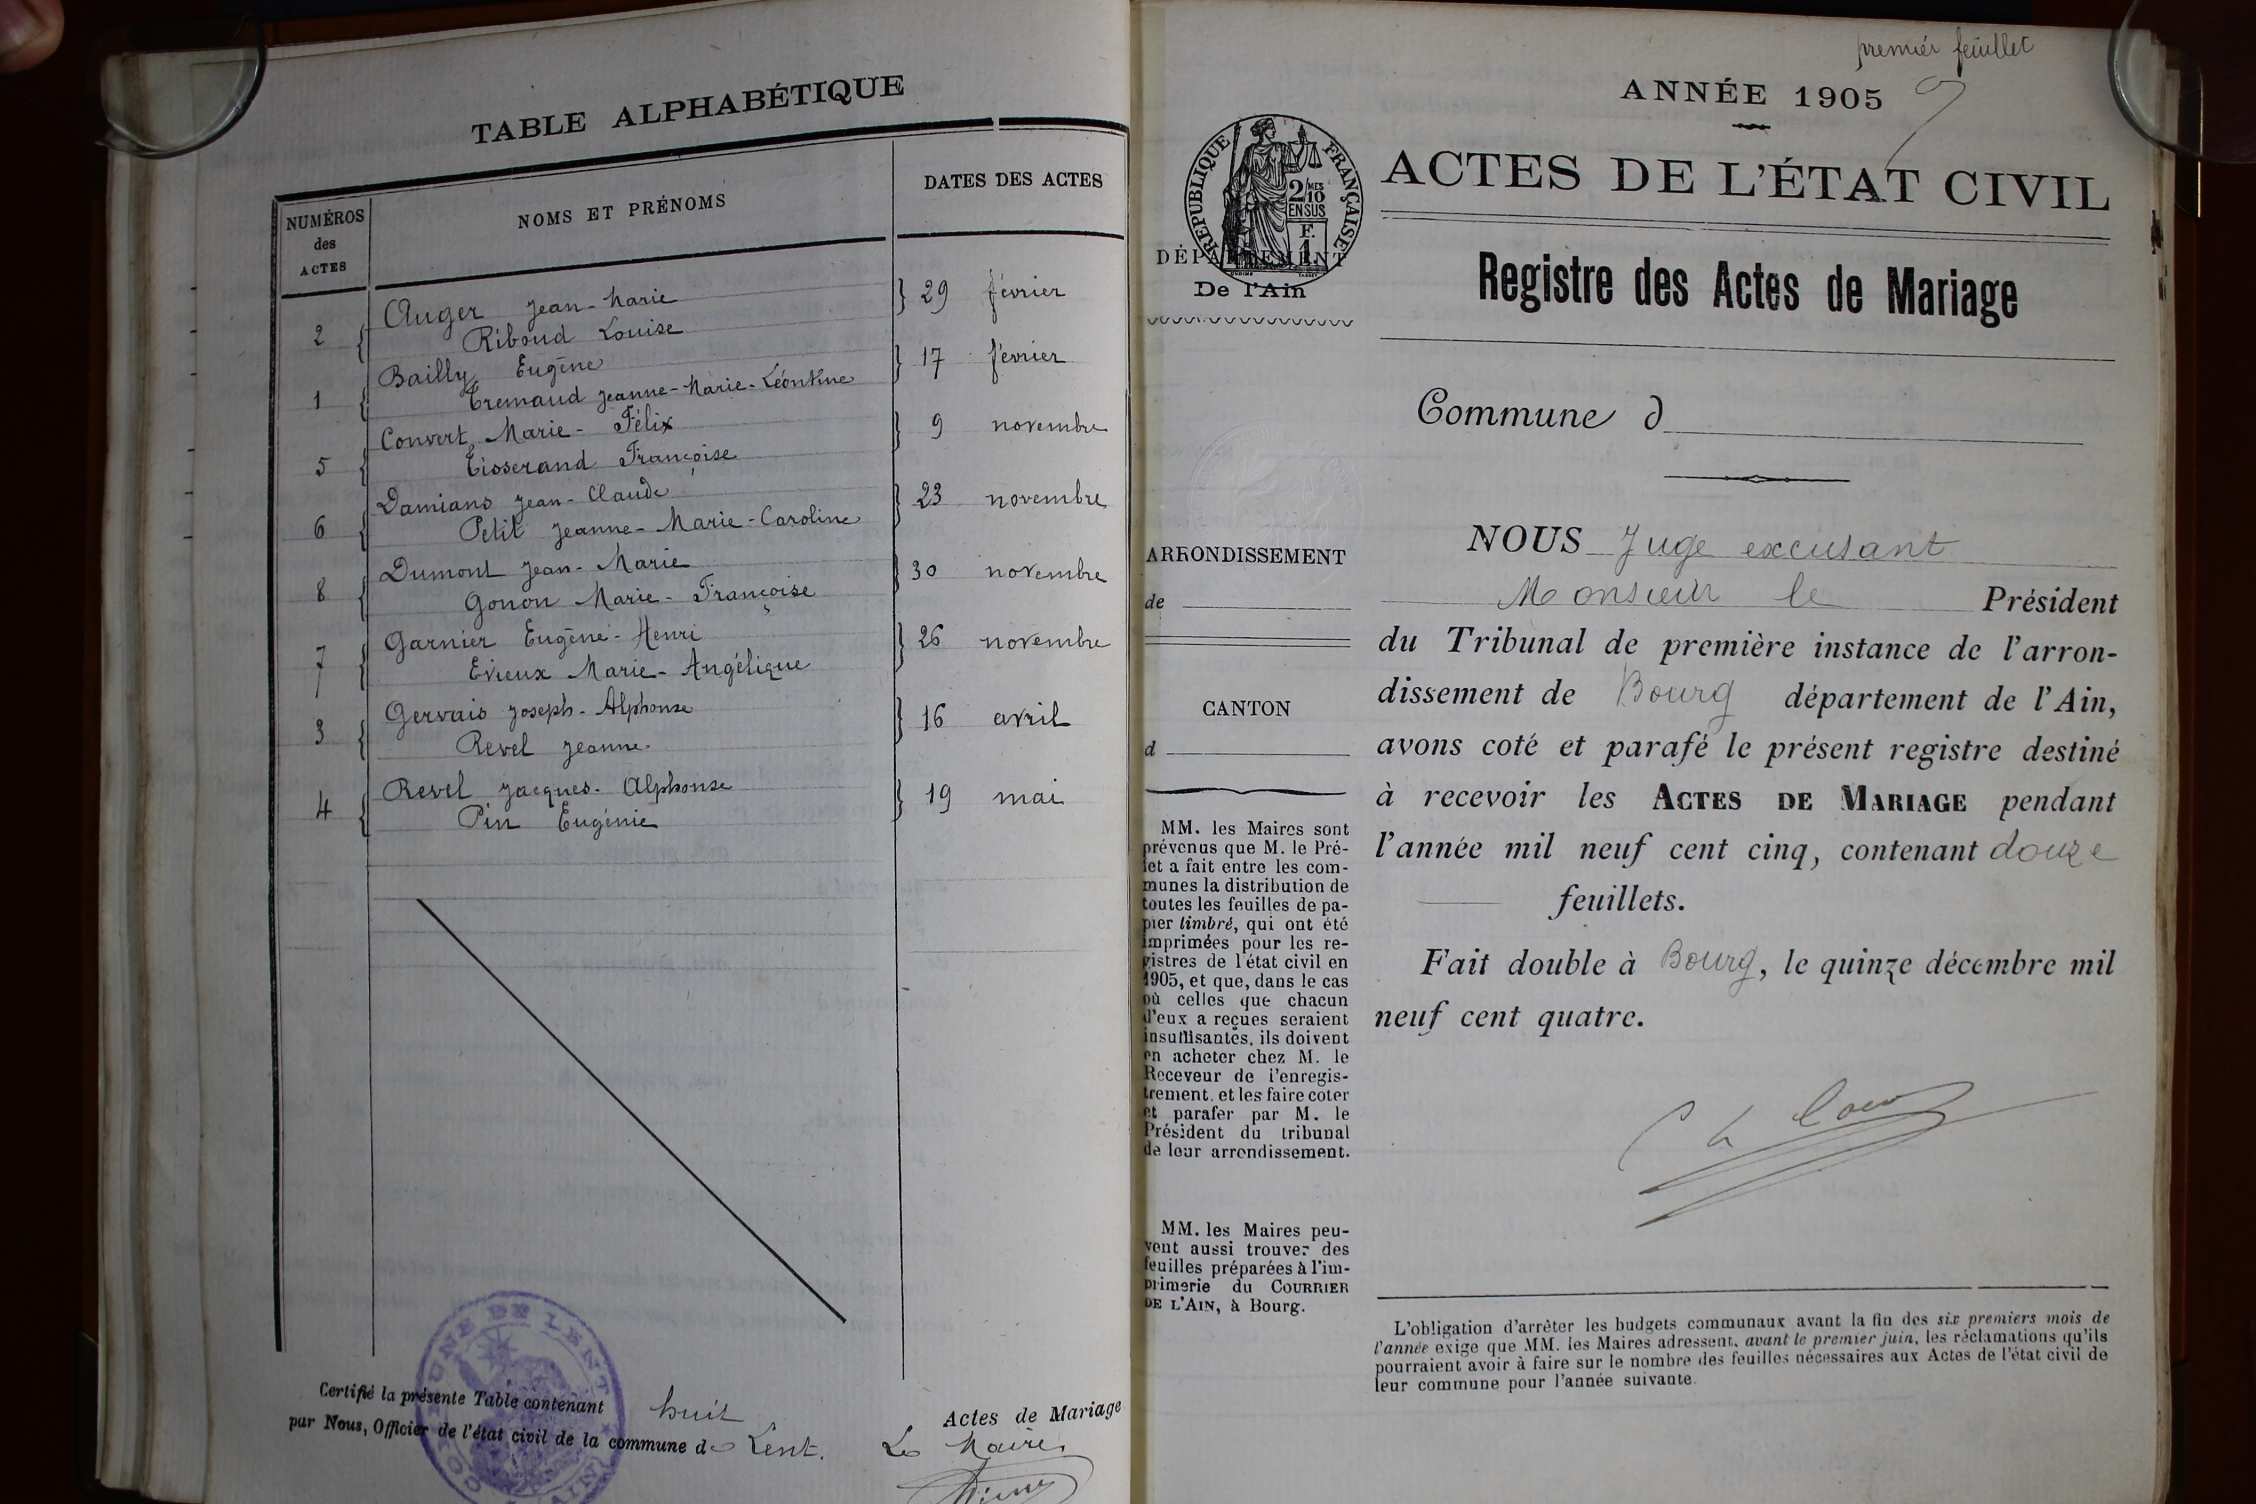 TABLE ALPHABÉTIQUE
NUMÉROS des ACTES
NOMS ET PRÉNOMS
DATES DES ACTES
2 { Auger Jean-Marie } 29 février
Riboud Louise
1 { Bailly Eugène } 17 février
Tremaud Jeanne-Marie-Léontine
5 { Convert Marie-Félix } 9 novembre
Tisserand Françoise
6 { Damians Jean-Claude } 23 novembre
Petit Jeanne-Marie-Caroline
8 { Dumont Jean-Marie } 30 novembre
Gonon Marie-Françoise
7 { Garnier Eugène-Henri } 26 novembre
Evieux Marie-Angélique
3 { Gervais Joseph-Alphonse } 16 avril
Revel Jeanne.
4 { Revel Jacques-Alphonse } 19 mai
Pin Eugénie
Certifié la présente Table contenant huit Actes de Mariage
par Nous, Officier de l'état civil de la commune de Lent. Le Maire
COMMUNE DE LENT
AIN
premier feuillet
ANNÉE 1905
RÉPUBLIQUE FRANÇAISE
2/10 MES
EN SUS
F.
1
DÉPARTEMENT
De l'Ain
ACTES DE L'ÉTAT CIVIL
Registre des Actes de Mariage
Commune d
ARRONDISSEMENT
de
CANTON
d
MM. les Maires sont
prévenus que M. le Pré-
fet a fait entre les com-
munes la distribution de
toutes les feuilles de pa-
pier timbré, qui ont été
imprimées pour les re-
gistres de l'état civil en
1905, et que, dans le cas
où celles que chacun
d'eux a reçues seraient
insuffisantes, ils doivent
en acheter chez M. le
Receveur de l'enregis-
trement, et les faire coter
et parafer par M. le
Président du tribunal
de leur arrondissement.
MM. les Maires peu-
vent aussi trouver des
feuilles préparées à l'im-
primerie du COURRIER
DE L'AIN, à Bourg.
NOUS Juge excusant
Monsieur le Président
du Tribunal de première instance de l'arron-
dissement de Bourg département de l'Ain,
avons coté et parafé le présent registre destiné
à recevoir les ACTES DE MARIAGE pendant
l'année mil neuf cent cinq, contenant douze
feuillets.
Fait double à Bourg, le quinze décembre mil
neuf cent quatre.
L'obligation d'arrêter les budgets communaux avant la fin des six premiers mois de
l'année exige que MM. les Maires adressent, avant le premier juin, les réclamations qu'ils
pourraient avoir à faire sur le nombre des feuilles nécessaires aux Actes de l'état civil de
leur commune pour l'année suivante.